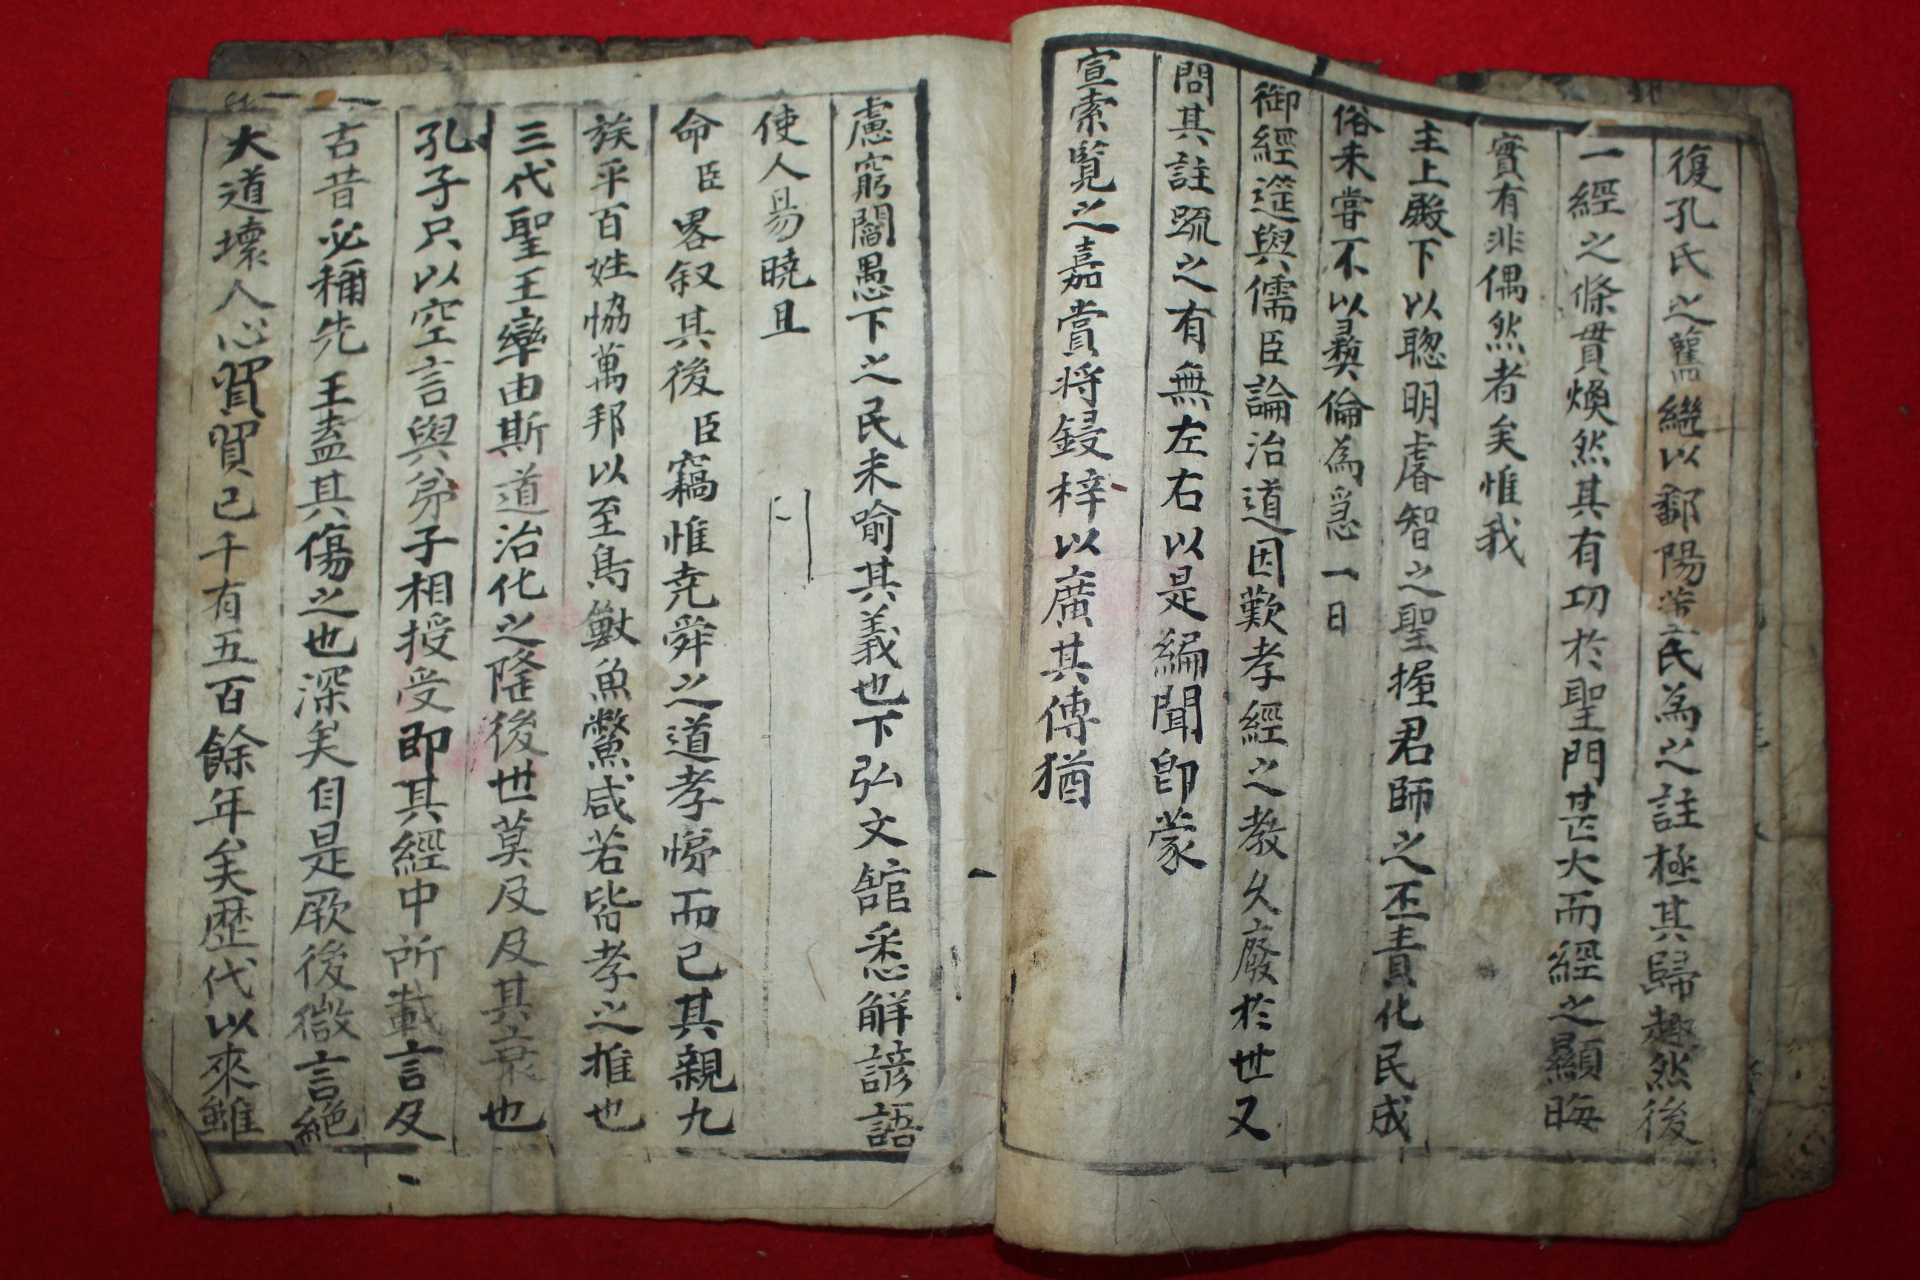 復孔氏之舊繼以鄱陽董氏為之註極其歸趣然後
一經之條貫煥然其有功於聖門甚大而經之顯晦
實有非偶然者矣惟我
主上殿下以聰明睿智之聖握君師之丕責化民成
俗未嘗不以彛倫為急一日
御經筵與儒臣論治道因歎孝經之教久廢於世又
問其註䟽之有無左右以是編聞卽蒙
宣索覧之嘉賞将鋟梓以廣其傳猶
慮窮閻愚下之民未喻其義也下弘文舘悉觧諺語
使人易曉且
命臣畧叙其後臣竊惟尭舜之道孝悌而已其親九
族平百姓恊萬邦以至鳥獸魚鱉咸若皆孝之推也
三代聖王率由斯道治化之隆後世莫及及其衰也
孔子只以空言與弟子相授受即其經中所載言及
古昔必稱先王盖其傷之也深矣自是厥後微言絕
大道壞人心貿貿已千有五百餘年矣歷代以來雖